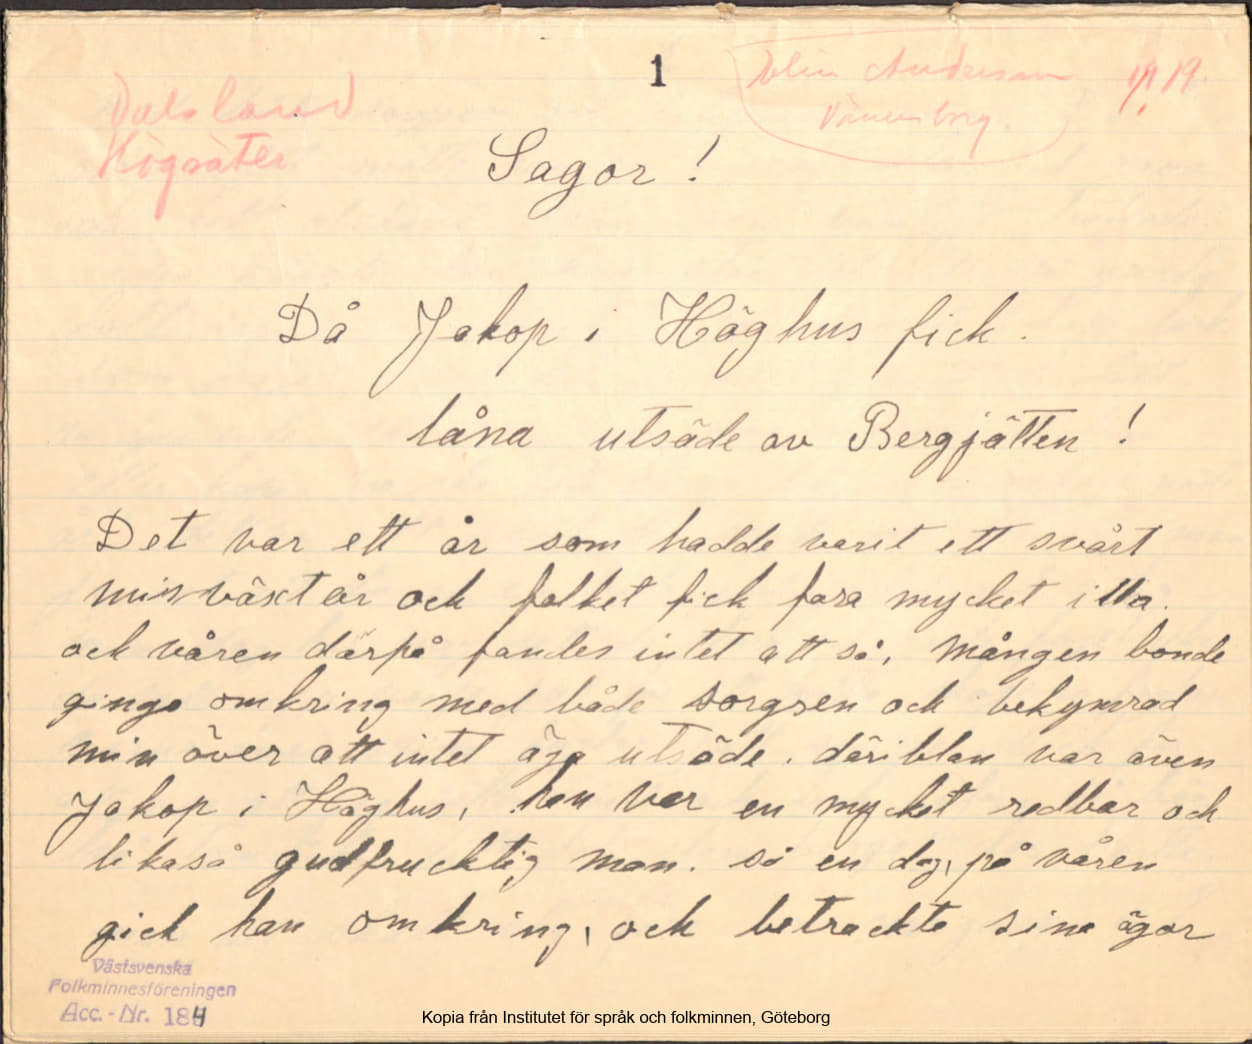 1
Dalsland
Högsäter
Elin Andersson
Vänersborg
19
Sagor !
Då Jakop i Höghus fick.
låna utsäde av Bergjätten !
Det var ett år som hadde varit ett svårt
missväxtår och folket fick fara mycket illa.
och våren därpå fandes intet att så, mången bonde
gingo omkring med både sorgsen och bekymrad
min över att intet äga utsäde. däriblan var även
Jakop i Höghus, han var en mycket redbar och
likaså gudfrucktig man. så en dag, på våren
gick han omkring, och betrackte sina ägor
Västsvenska
Folkminnesföreningen
Acc.-Nr. 184
Kopia från Institutet för språk och folkminnen, Göteborg